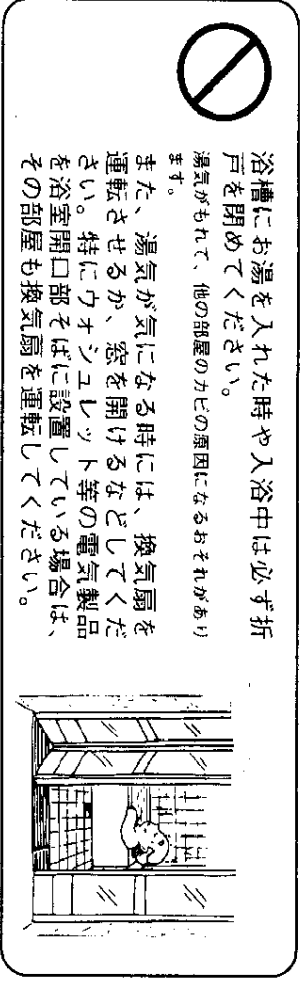 浴槽にお湯を入れた時や入浴中は必ず折
戸を閉めてください。
湯気がもれて、他の部屋のカビの原因になるおそれがあり
ます。
また、湯気が気になる時には、換気扇を
運転させるか、窓を開けるなどしてくだ
さい。特にウォシュレット等の電気製品
を浴室開口部そばに設置している場合は、
その部屋も換気扇を運転してください。